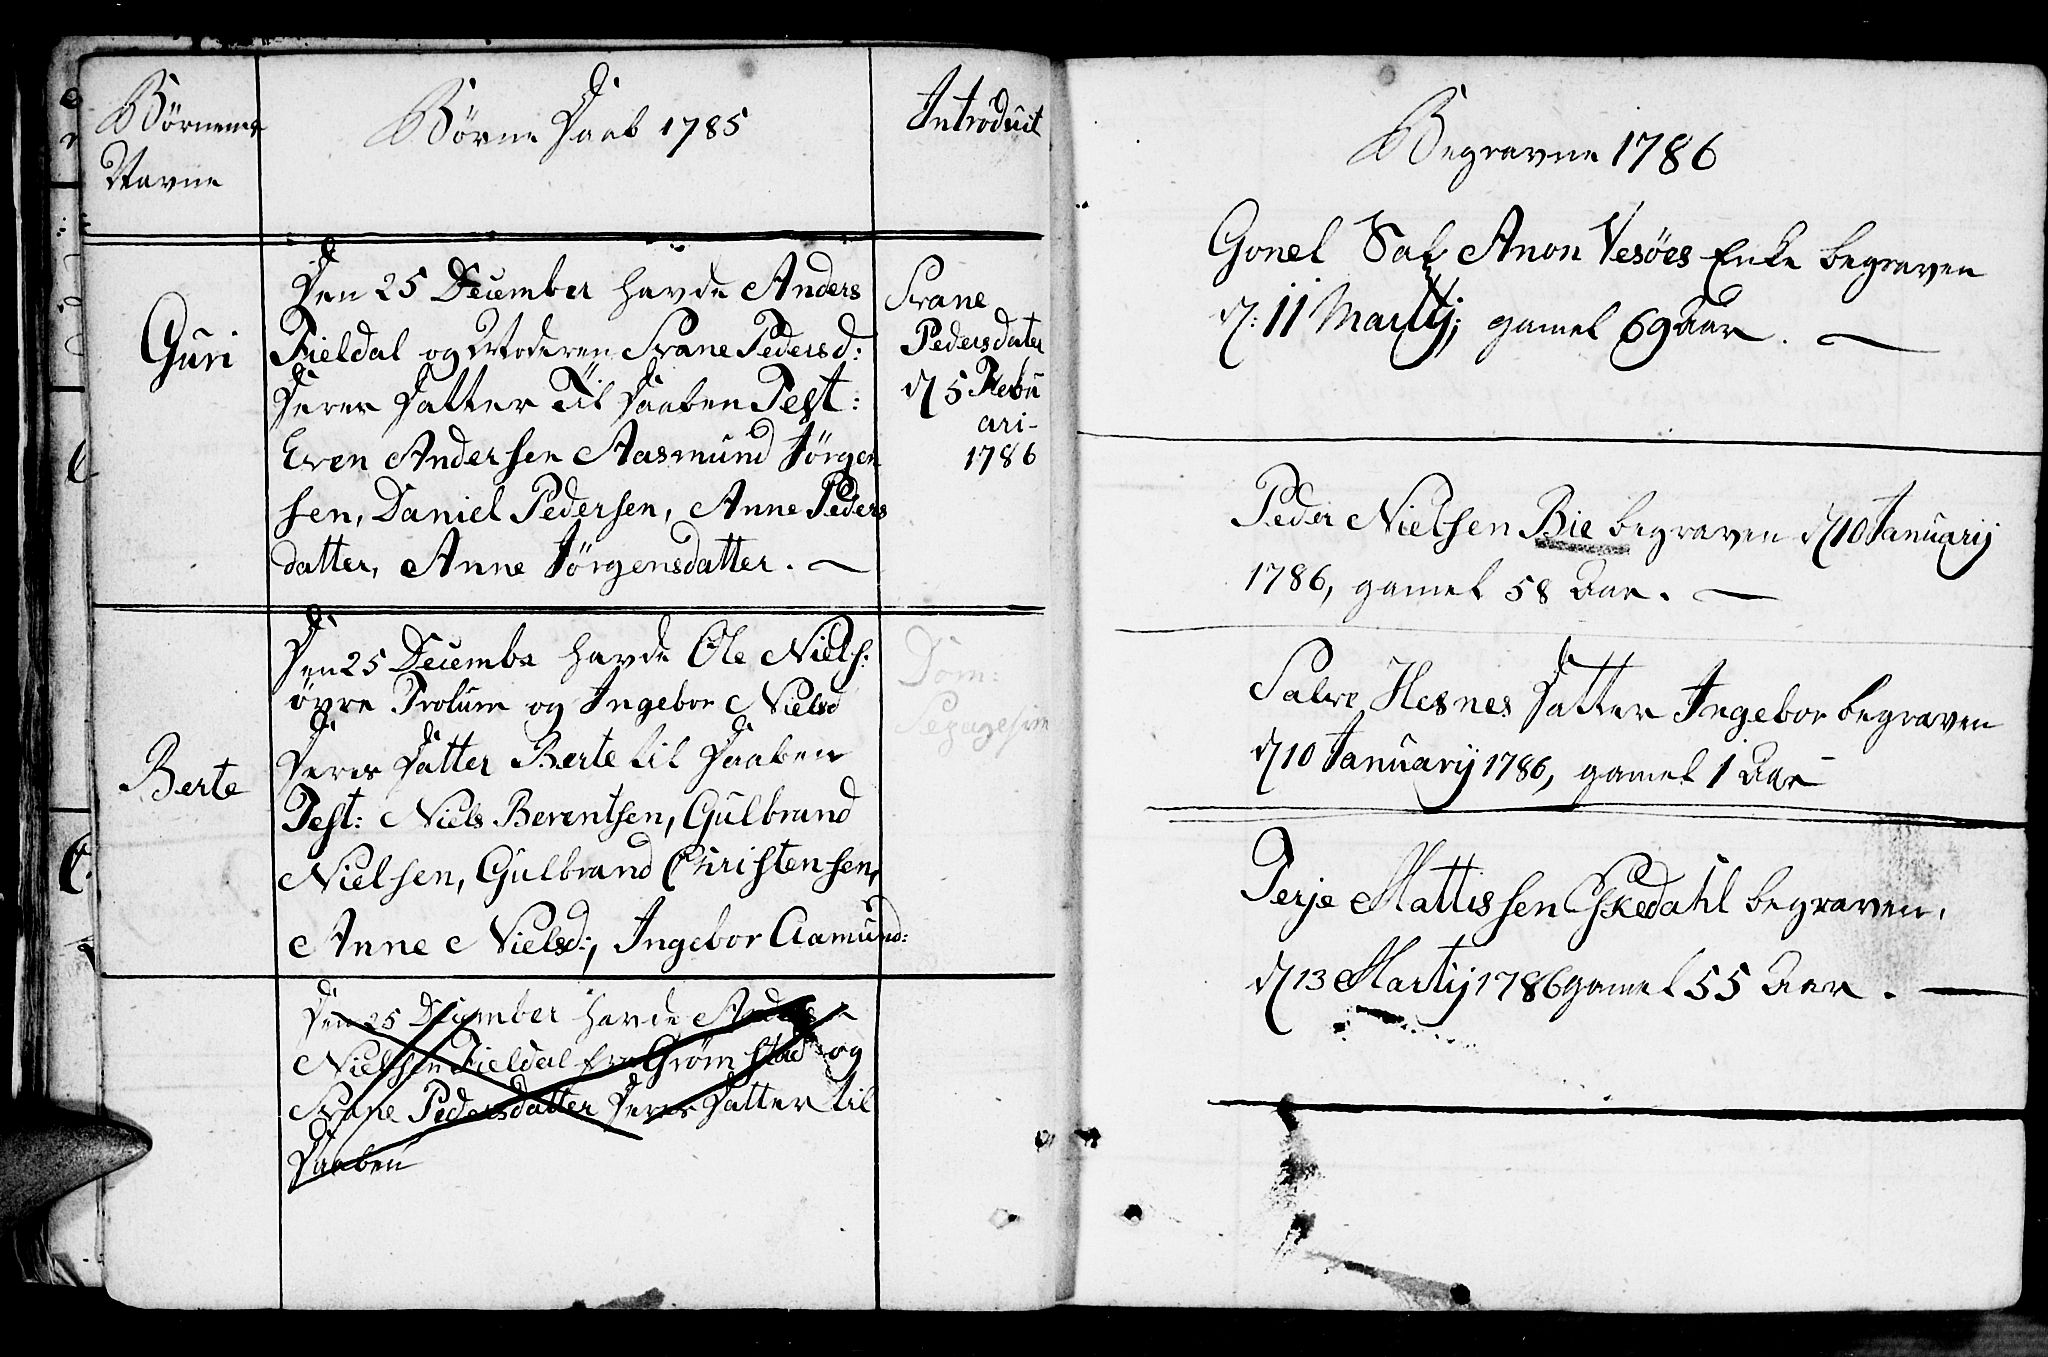 Börnenes
Navne
Börne Daab 1785
Introduct
Guri
Den 25 December havde Anders
Fieldal og Moderen Svane Pedersd:
Deres Datter Til Daaben Test:
Even Andersen Aasmund Jörgen
sen, Daniel Pedersen, Anne Peders
datter, Anne Jörgensdatter. —
Svane
Pedersdater
d 5 Febru
ari-
1786
Berte
Den 25 Decembr havde Ole Niels:
övre Trolum og Ingebor Nielsd
Deres Datter Berte til Daaben
Test: Niels Berentsen, Gulbrand
Nielsen, Gulbrand Christensen,
Anne Nielsd:, Ingebor Aamund:
Dom:
Den 25 December havde Anders
Nielsen Fieldal fra Grömstad og
Svane Pedersdatter Deres Datter til
Daaben
Begravne 1786
Gonel Sal Anon Vesöes Enke begraven
d: 11 Martij; gamel 69 Aar. —
Peder Nielsen Bie begraven d 10 Januarij
1786, gamel 58 Aar. —
Salve Hesnes Datter Ingebor begraven
d 10 Januarij 1786, gamel 1 Aar
Terje Mattissen Skedahl begraven,
d 13 Martij 1786 gamel 55 Aar. —